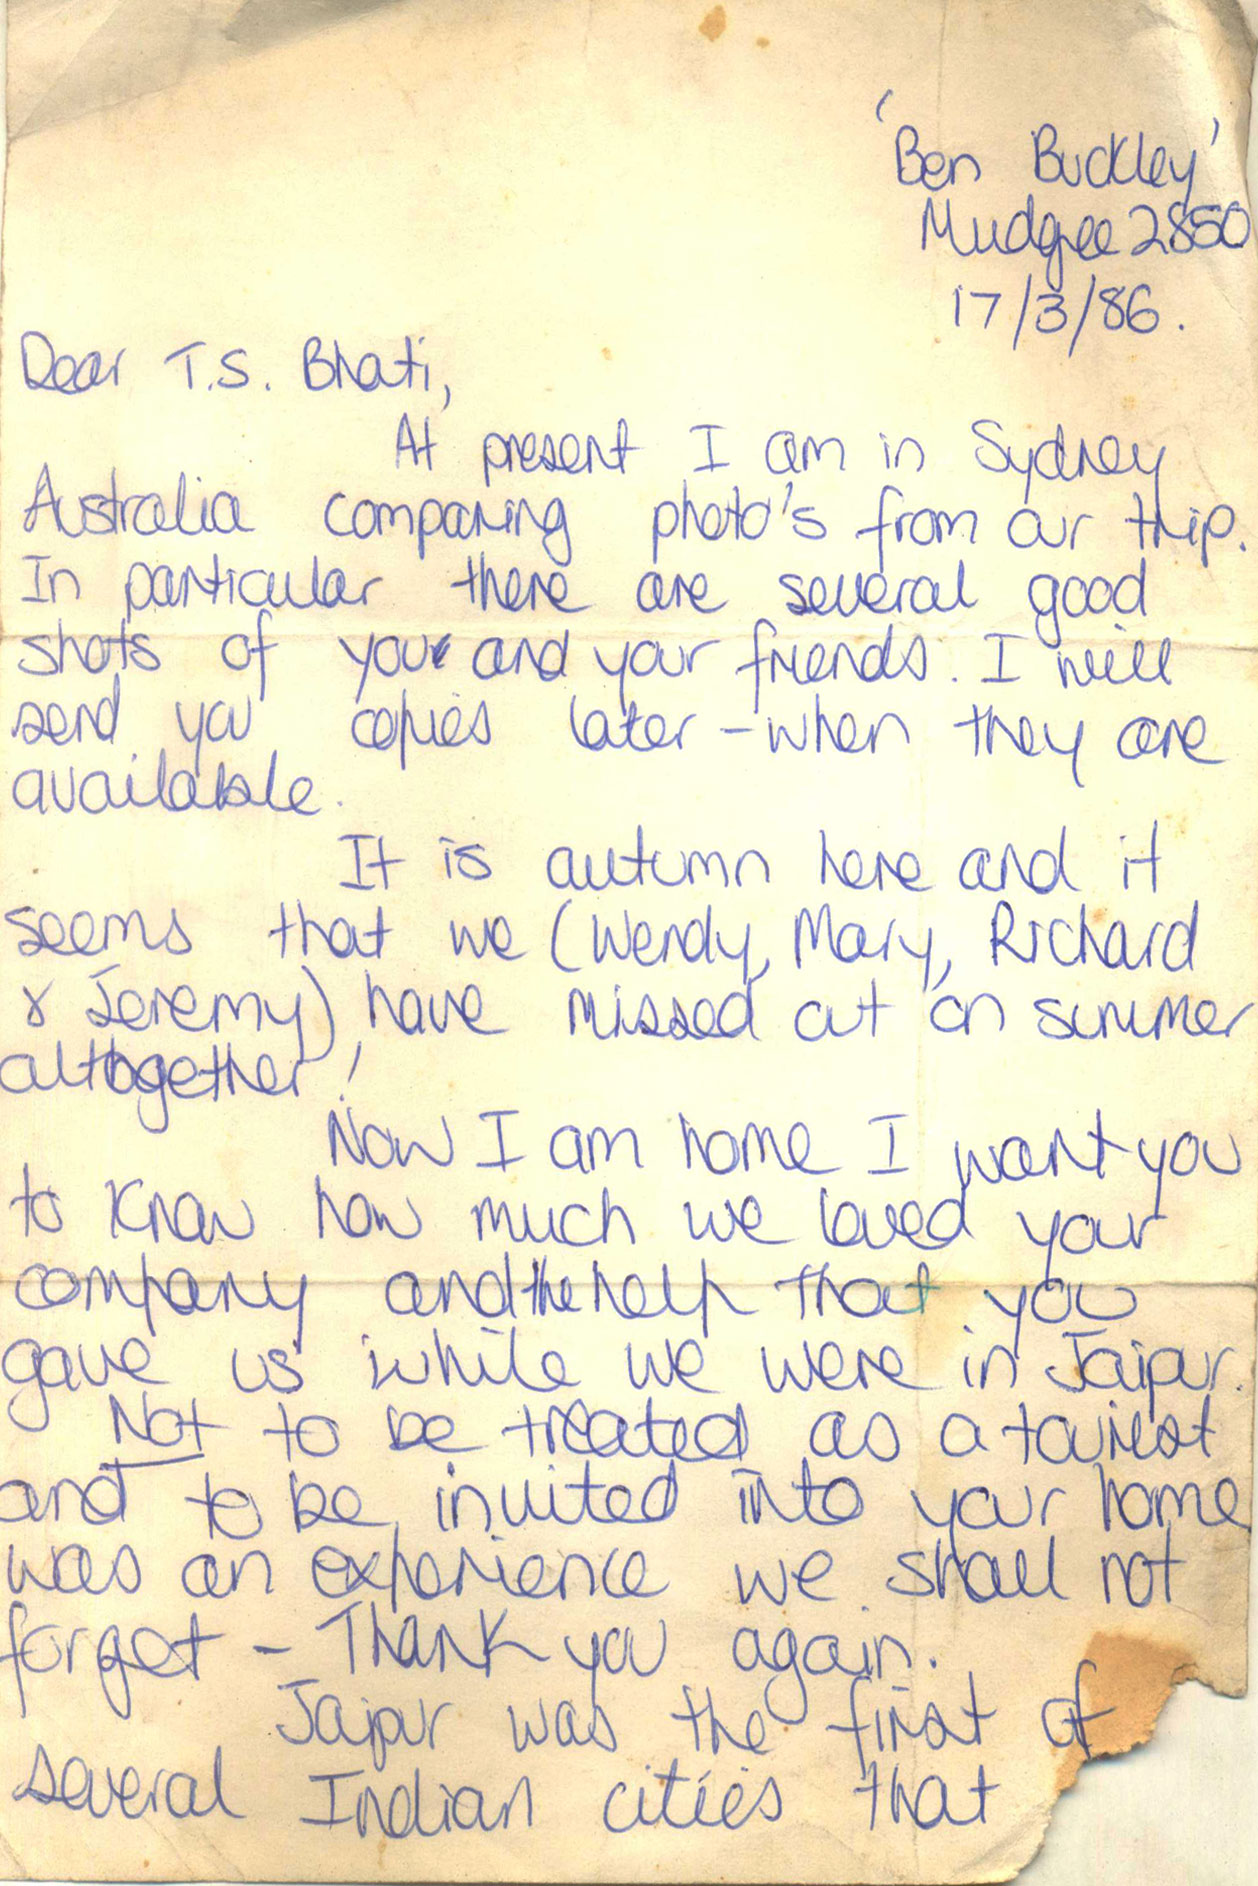 'Ben Buckley'
Mudgee 2850
17/3/86.
Dear T.S. Bhati,
At present I am in Sydney
Australia comparing photo's from our trip.
In particular there are several good
shots of you and your friends. I will
send you copies later - when they are
available.
It is autumn here and it
seems that we (Wendy, Mary, Richard
& Jeremy) have missed out on summer
altogether!
Now I am home I want you
to know how much we loved your
company and the help that you
gave us while we were in Jaipur.
Not to be treated as a tourist
and to be invited into your home
was an experience we shall not
forget - Thank you again.
Jaipur was the first of
several Indian cities that